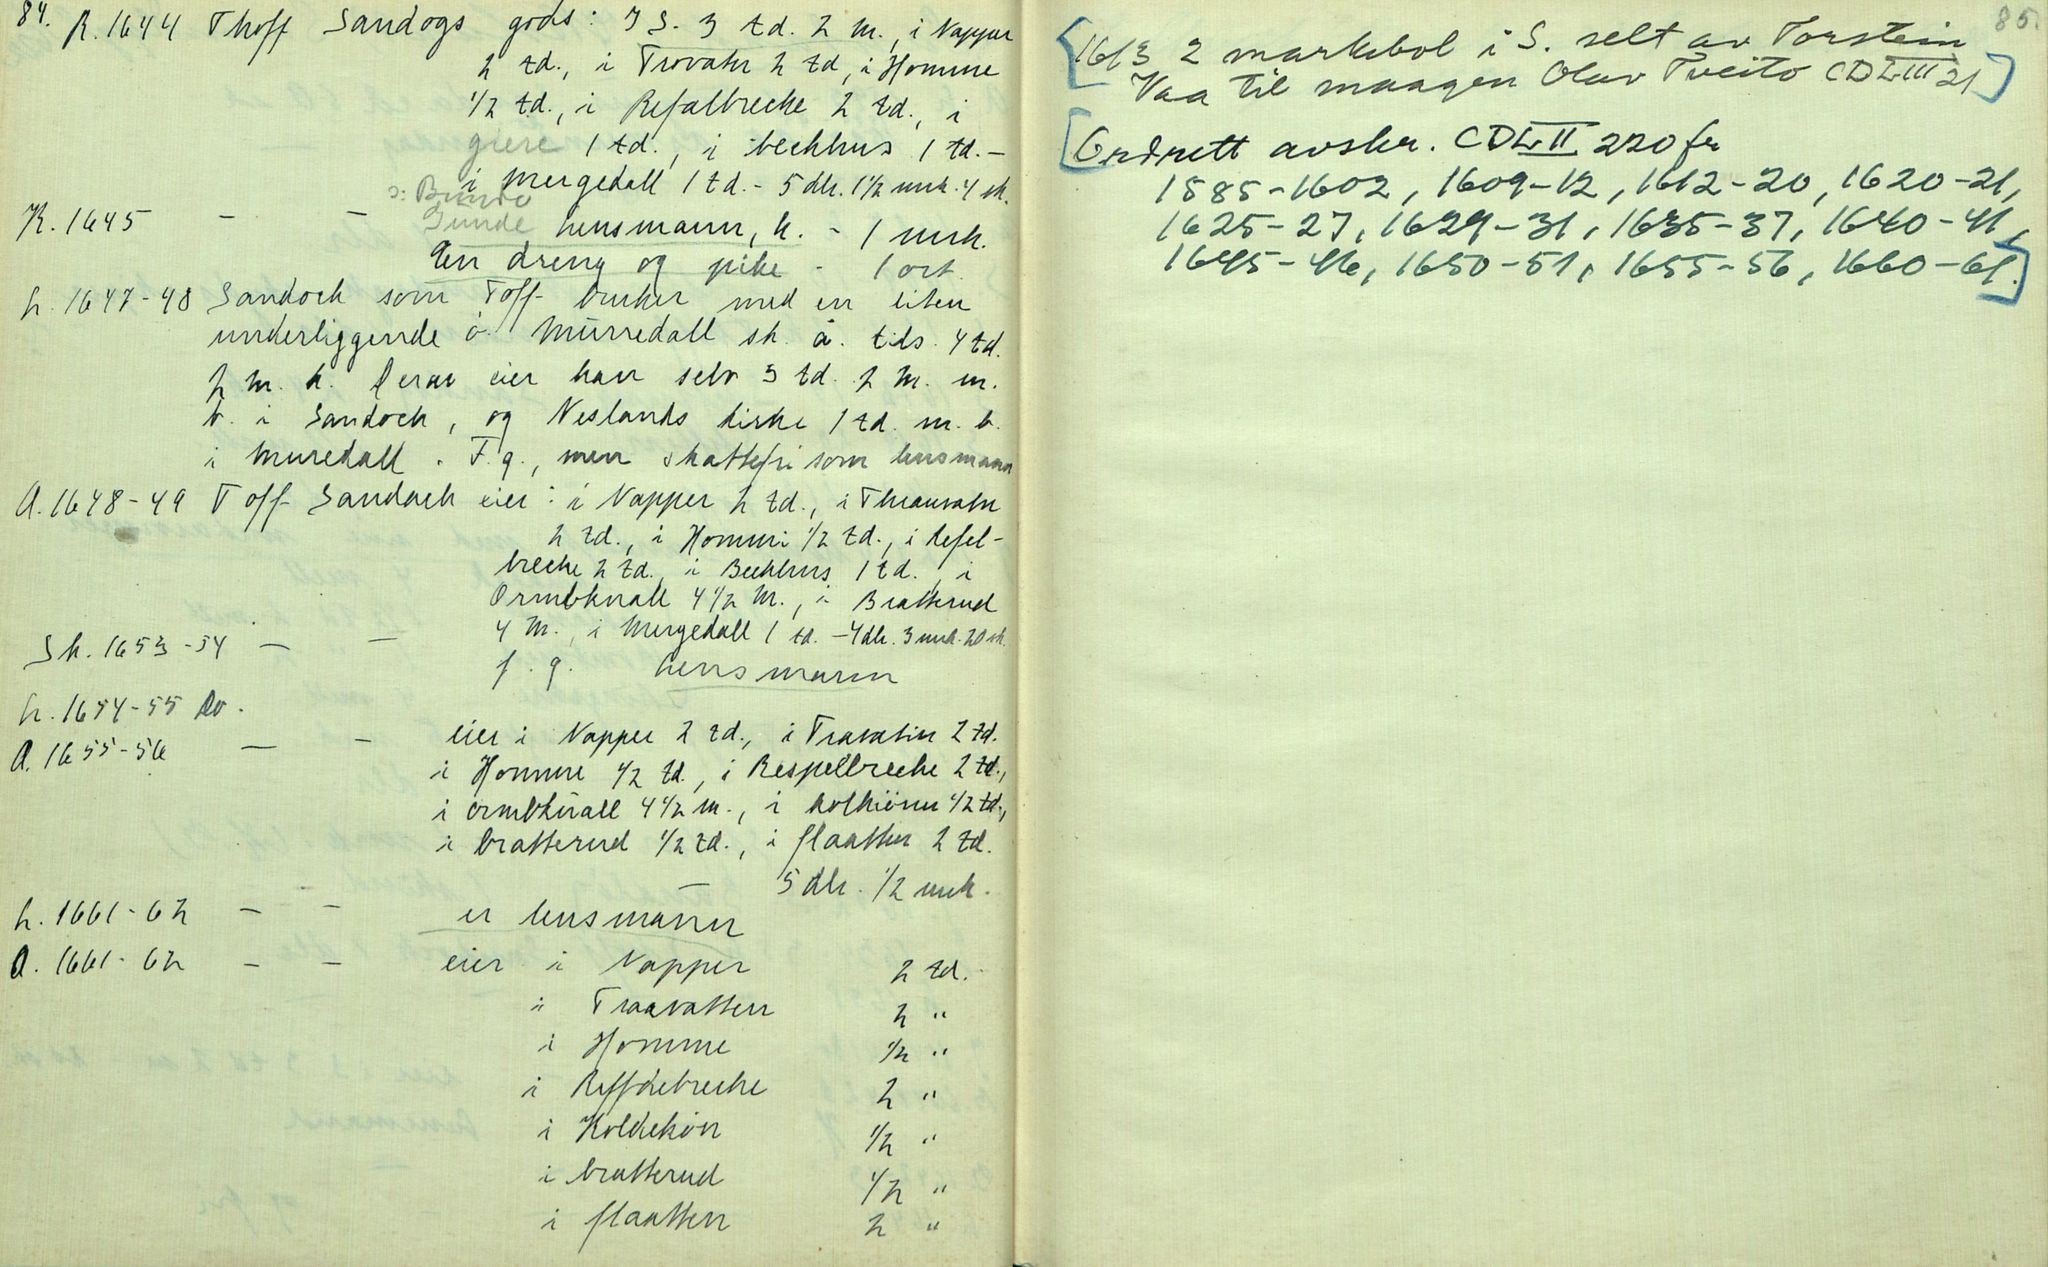 84. R. 1644 Thoff Sandogs gods: I S. 3 td. 2 m., i Napper
2 td., i Trovatn 2 td, i Homme
1/2 td., i Refalbrecke 2 td., i
giere 1 td., i beckhus 1 td. -
i mergedall 1 td. - 5 dlr. 1 1/2 mrk. 4 sk.
ɔ: Bunde
K. 1645 - - Gunde lensmann, k. - 1 mrk.
En dreng og pike - 1 ort.
L. 1647-48 Sandock som Toff bruker med en liten
underliggende ö Mürredall sk. å. tids. 4 td.
2 m. k. Derav eier han selv 3 td. 2 m. m.
b. i Sandock, og Neslands kirke 1 td. m. b.
i Muredall. F. g., men skattefri som lensmann
A. 1648-49 Toff Sandock eier: i Napper 2 td., i Thrauvatn
2 td., i Hommi 1/2 td., i Refel-
brecke 2 td., i Beckhus 1 td. i
Ormbknall 4 1/2 m., i Bratterud
4 m., i Mergedall 1 td. - 4 dlr. 3 mrk. 20 sk.
Sk. 1653-54 - - f. g. lensmann
L. 1654-55 Do.
A. 1655-56 - - eier i Napper 2 td., i Travatin 2 td.
i Homme 1/2 td., i Respelbrecke 2 td.,
i ormbknall 4 1/2 m., i kolkiönn 1/2 td.,
i bratterud 1/2 td., i flaatten 2 td.
- 5 dlr. 1/2 mrk.
L. 1661-62 - - er lensmann
A. 1661-62 - - eier i Napper 2 td.
i Traavatten 2 "
i Homme 1/2 "
i Reffdebrecke 2 "
i Koldekön 1/2 "
i bratterud 1/2 "
i flaatten 2 "
85.
[1613 2 markebol i S. selt av Torstein
Vaa til maagen Olav Tveito CDL III 21]
[Ordrett avskr. CDL II 220 fr
1585-1602, 1609-12, 1612-20, 1620-21,
1625-27, 1629-31, 1635-37, 1640-41,
1645-46, 1650-51, 1655-56, 1660-61.]